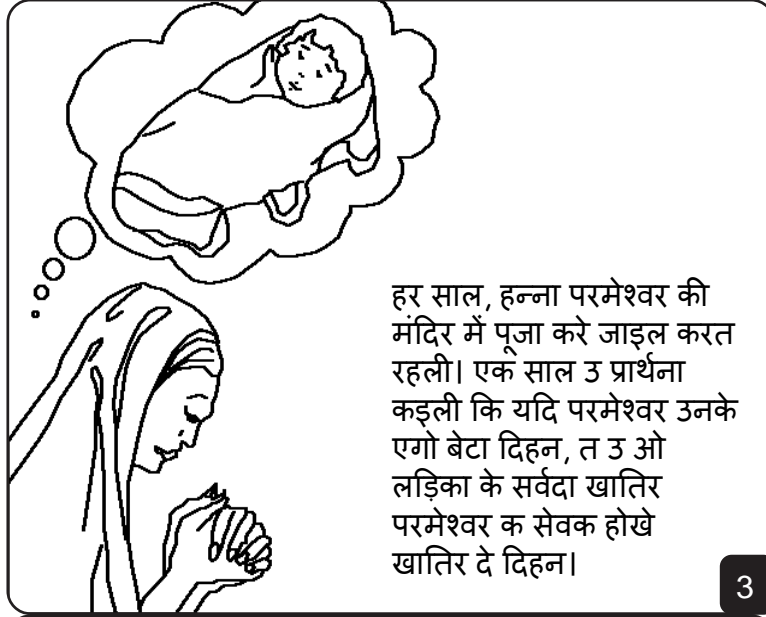 हर साल, हन्ना परमेश्वर की
मंदिर में पूजा करे जाइल करत
रहली। एक साल उ प्रार्थना
कइली कि यदि परमेश्वर उनके
एगो बेटा दिहन, त उ ओ
लड़िका के सर्वदा खातिर
परमेश्वर क सेवक होखे
खातिर दे दिहन।
3